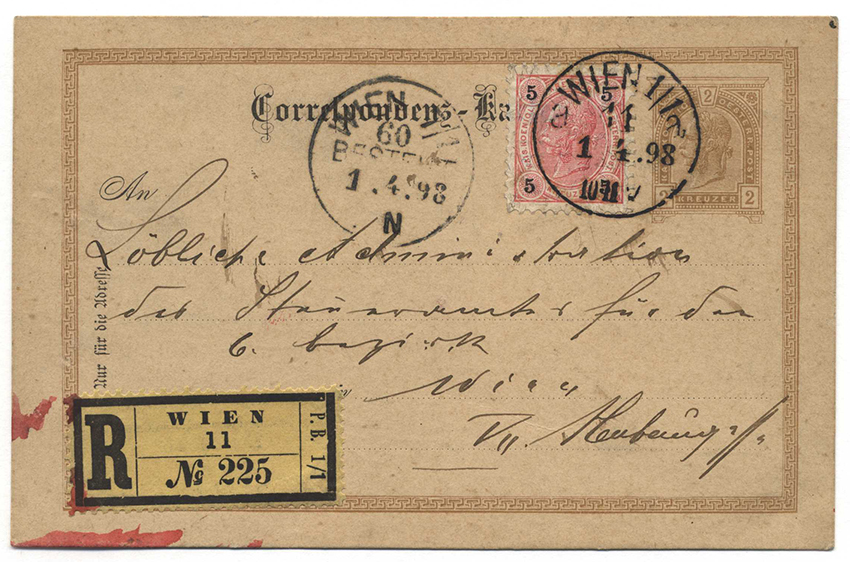 Correspondenz-Ka
WIEN 1/1
60
BESTELLT
1.4.98
N
5 5
5 5
WIEN 1/1
11
1 4.98
2
2 KREUZER 2
An
Löbliche Administration
des Steueramtes für den
6. Bezirk
in Wien
Nur für die Adresse
R
WIEN
11
№ 225
P.B. 1/1